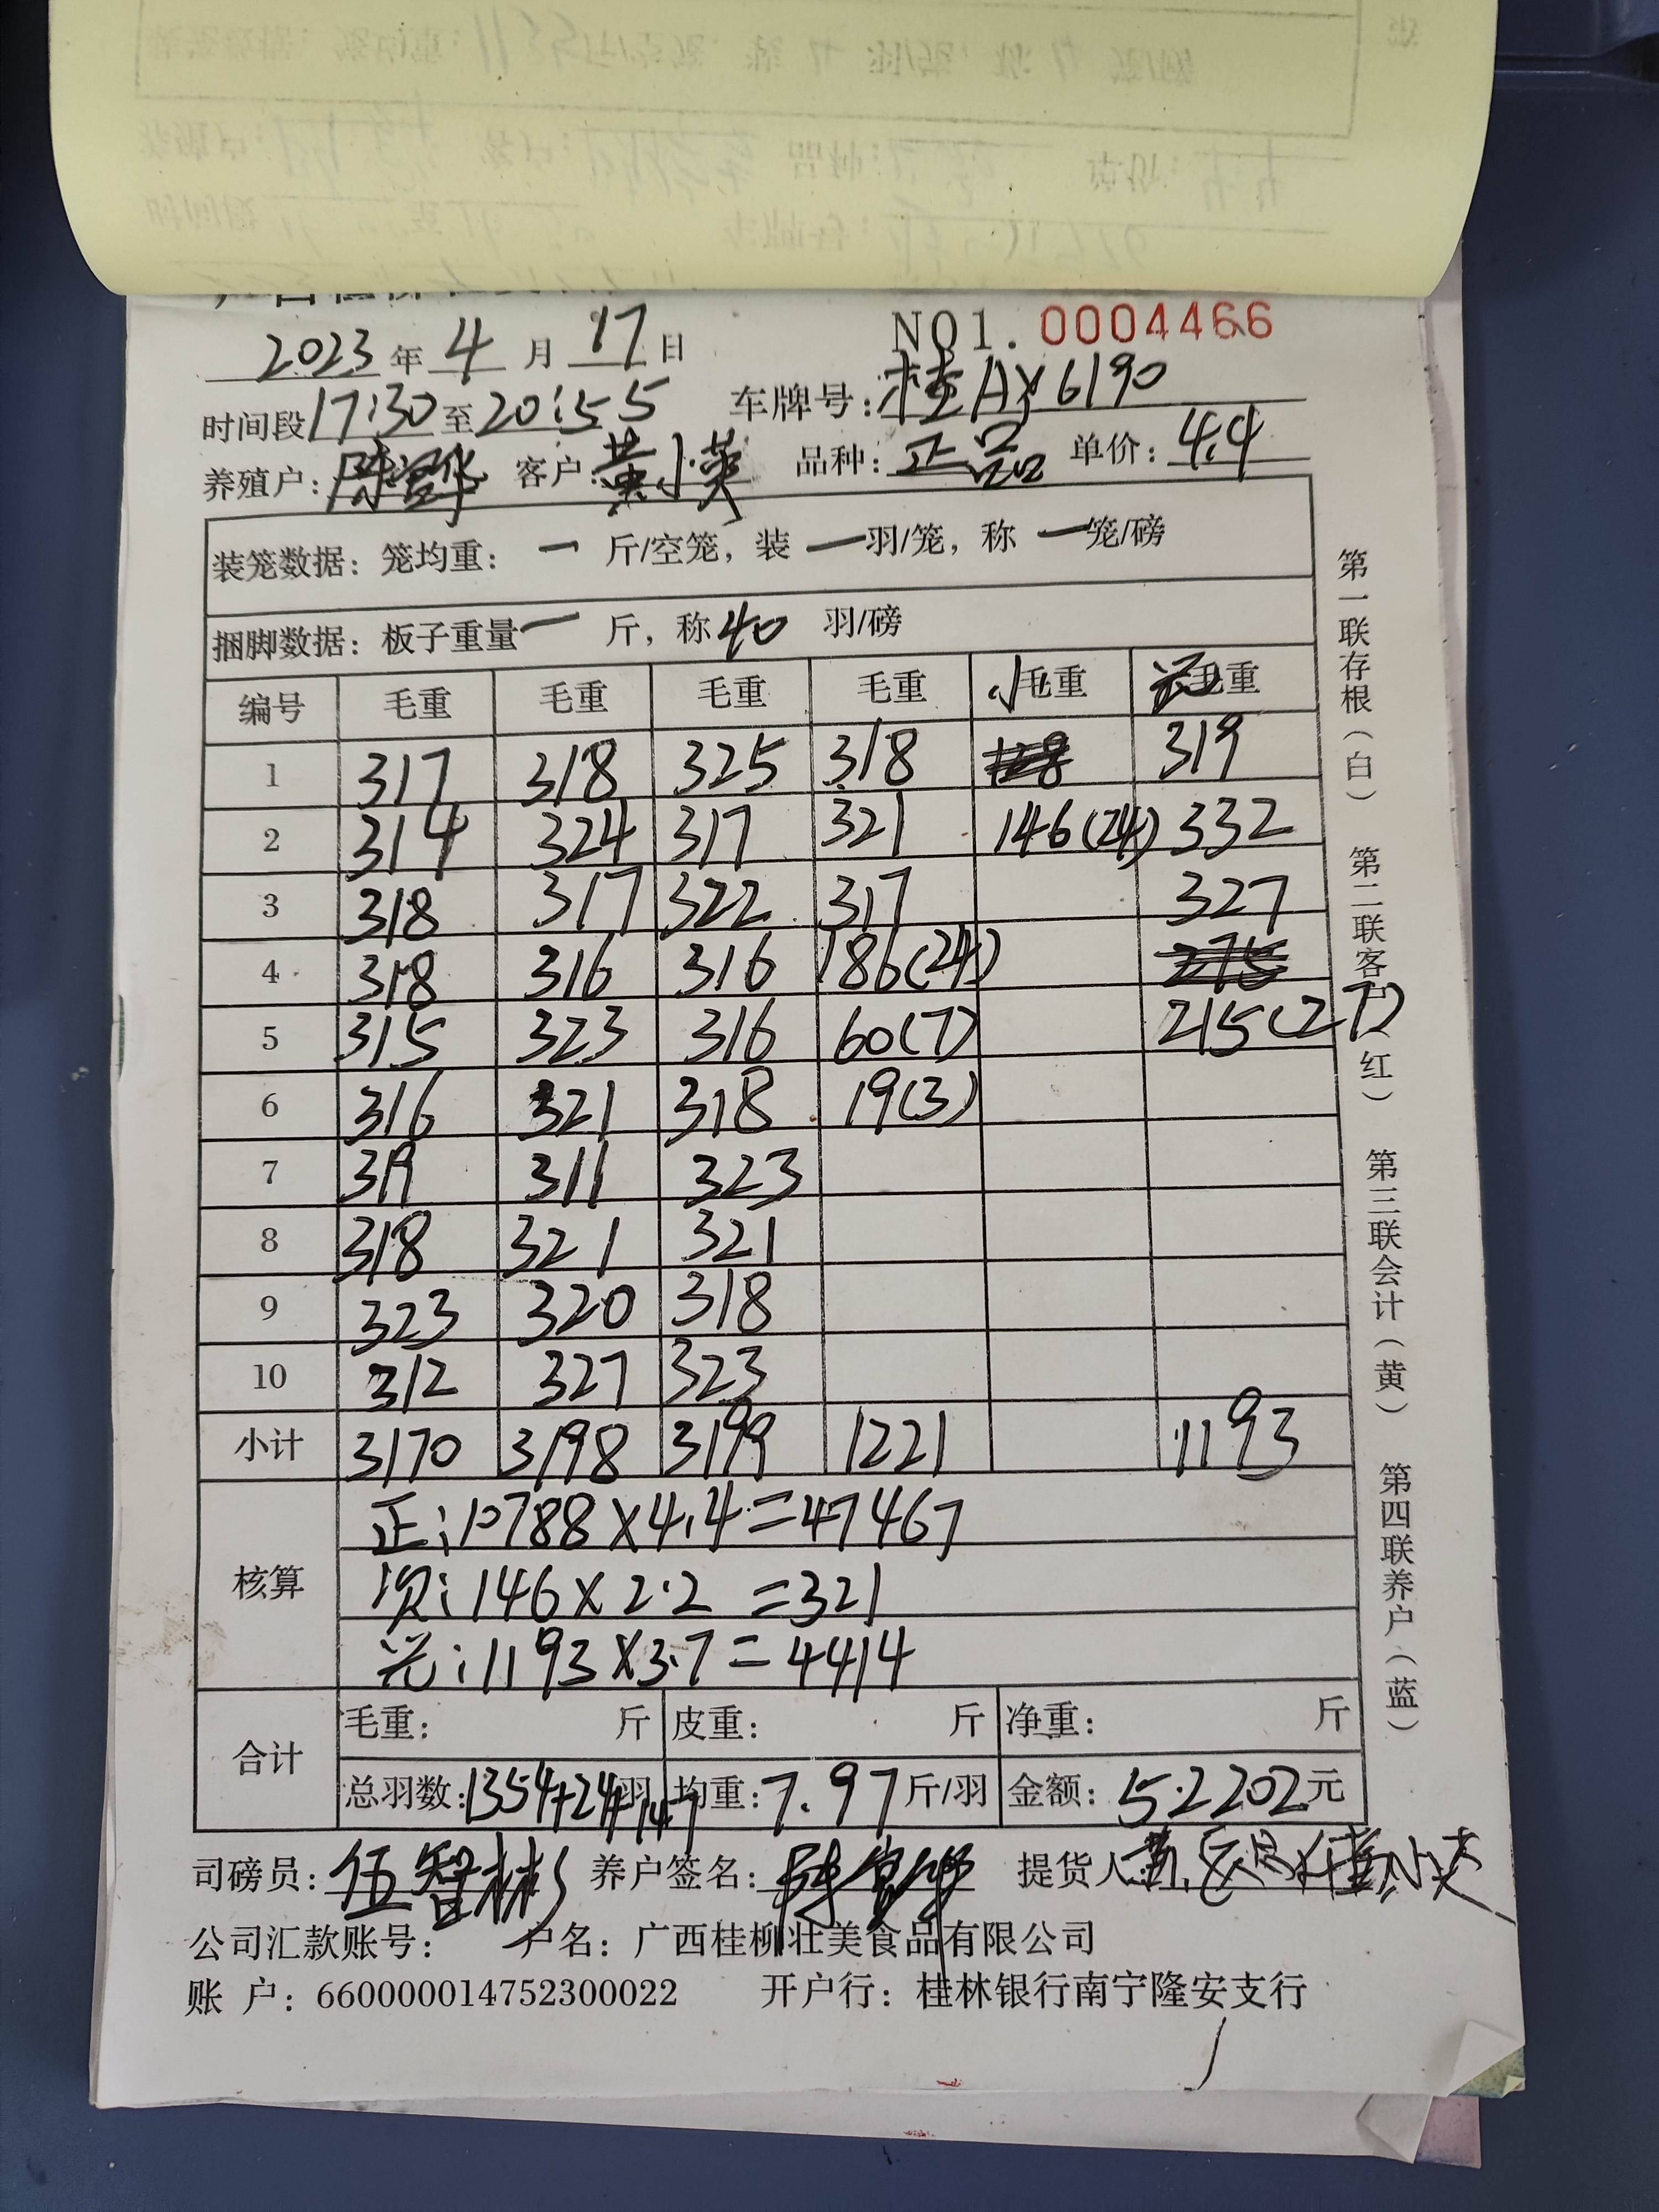 2023年4月17日 NO1.0004466
时间段17:30至20:55 车牌号:桂AX6190
养殖户: 客户:黄小英 品种:正品 单价:4.4
装笼数据:笼均重:一斤/空笼,装一羽/笼,称一笼/磅
捆脚数据:板子重量一斤,称40羽/磅
编号 毛重 毛重 毛重 毛重 小毛重 毛重
1 317 318 325 318 128 319
2 314 324 317 321 146(24) 332
3 318 317 322 317 327
4 318 316 316 186(24) 275
5 315 323 316 60(7) 215(27)
6 316 321 318 19(3)
7 319 311 323
8 318 321 321
9 323 320 318
10 312 327 323
小计 3170 3198 3199 1221 1193
核算 正:10788×4.4=47467
次:146×2.2=321
:1193×3.7=4414
合计 毛重: 斤 皮重: 斤 净重: 斤
总羽数:1354+24+147羽 均重:7.97斤/羽 金额:5.2202元
司磅员:伍智彬 养户签名: 提货人
公司汇款账号: 户名:广西桂柳壮美食品有限公司
账 户:660000014752300022 开户行:桂林银行南宁隆安支行
第一联存根(白) 第二联客户(红) 第三联会计(黄) 第四联养户(蓝)